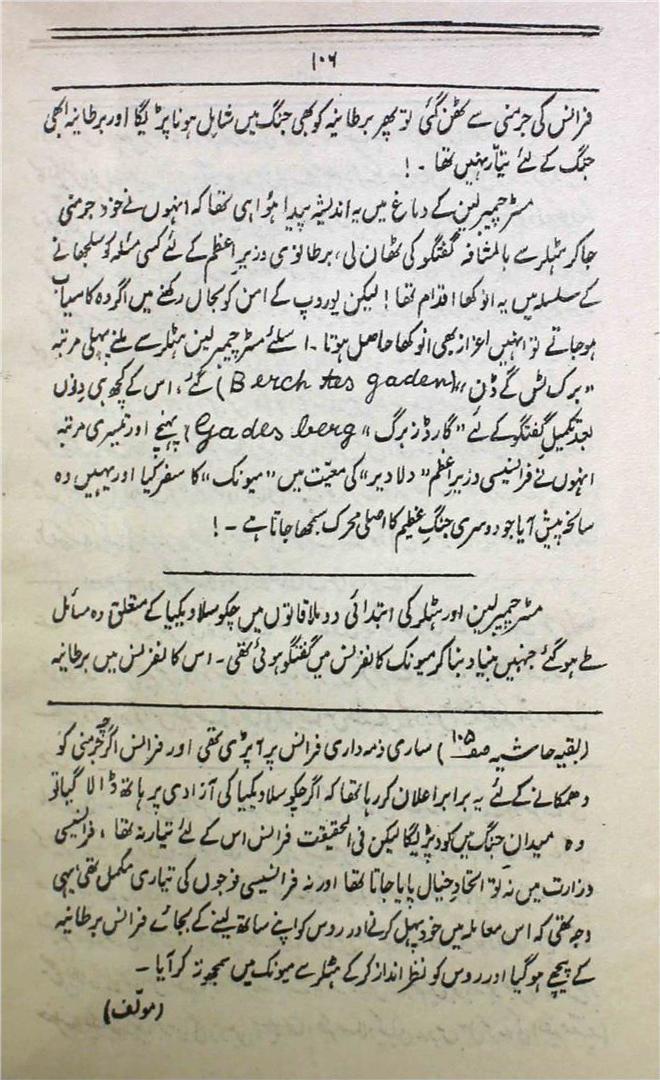 ۱۰۶
فرانس کی جرمنی سے ٹھن گئی تو پھر برطانیہ کو بھی جنگ میں شامل ہونا پڑیگا اور برطانیہ ابھی
جنگ کے لئے تیار نہیں تھا ۔ !
مسٹر چیمبرلین کے دماغ میں یہ اندیشہ پیدا ہؤا ہی تھا کہ انہوں نے خود جرمنی
جا کر ہٹلر سے بالمشافہ گفتگو کی ٹھان لی، برطانوی وزیرِ اعظم کے لئے کسی مسئلہ کو سلجھانے
کے سلسلہ میں یہ انوکھا اقدام تھا ! لیکن یوروپ کے امن کو بحال رکھنے میں اگر وہ کامیاب
ہو جاتے تو انہیں اعزاز بھی انوکھا حاصل ہوتا ۔ اسلئے مسٹر چیمبرلین ہٹلر سے ملنے پہلی مرتبہ
”برک ٹس گے ڈن“ (Berch tes gaden) گئے، اس کے کچھ ہی دنوں
بعد تکمیلِ گفتگو کے لئے ”گارڈز برگ“ (Gades berg) پہنچے اور تیسری مرتبہ
انہوں نے فرانسیسی وزیرِ اعظم ”دلادیر“ کی معیّت میں ”میونک“ کا سفر کیا اور یہیں وہ
سانحہ پیش آیا جو دوسری جنگِ عظیم کا اصلی محرک سمجھا جاتا ہے ۔ !
مسٹر چیمبرلین اور ہٹلر کی ابتدائی دو ملاقاتوں میں چکوسلاویکیا کے متعلق وہ مسائل
طے ہو گئے جنہیں بنیاد بنا کر میونک کانفرنس میں گفتگو ہوئی تھی ۔ اس کانفرنس میں برطانیہ
(بقیہ حاشیہ صفہ ۱۰۵) ساری ذمہ داری فرانس پر آپڑی تھی اور فرانس اگرچہ جرمنی کو
دھمکانے کے لئے یہ برابر اعلان کر رہا تھا کہ اگر چکوسلاویکیا کی آزادی پر ہاتھ ڈالا گیا تو
وہ میدانِ جنگ میں کود پڑیگا لیکن فی الحقیقت فرانس اس کے لئے تیار نہ تھا ، فرانسیسی
وزارت میں نہ تو اتحادِ خیال پایا جاتا تھا اور نہ فرانسیسی فوجوں کی تیاری مکمل تھی یہی
وجہ تھی کہ اس معاملہ میں خود پہل کرنے اور روس کو اپنے ساتھ لینے کے بجائے فرانس برطانیہ
کے پیچھے ہو گیا اور روس کو نظر انداز کر کے ہٹلر سے میونک میں سمجھوتہ کر آیا ۔
(مولّف)